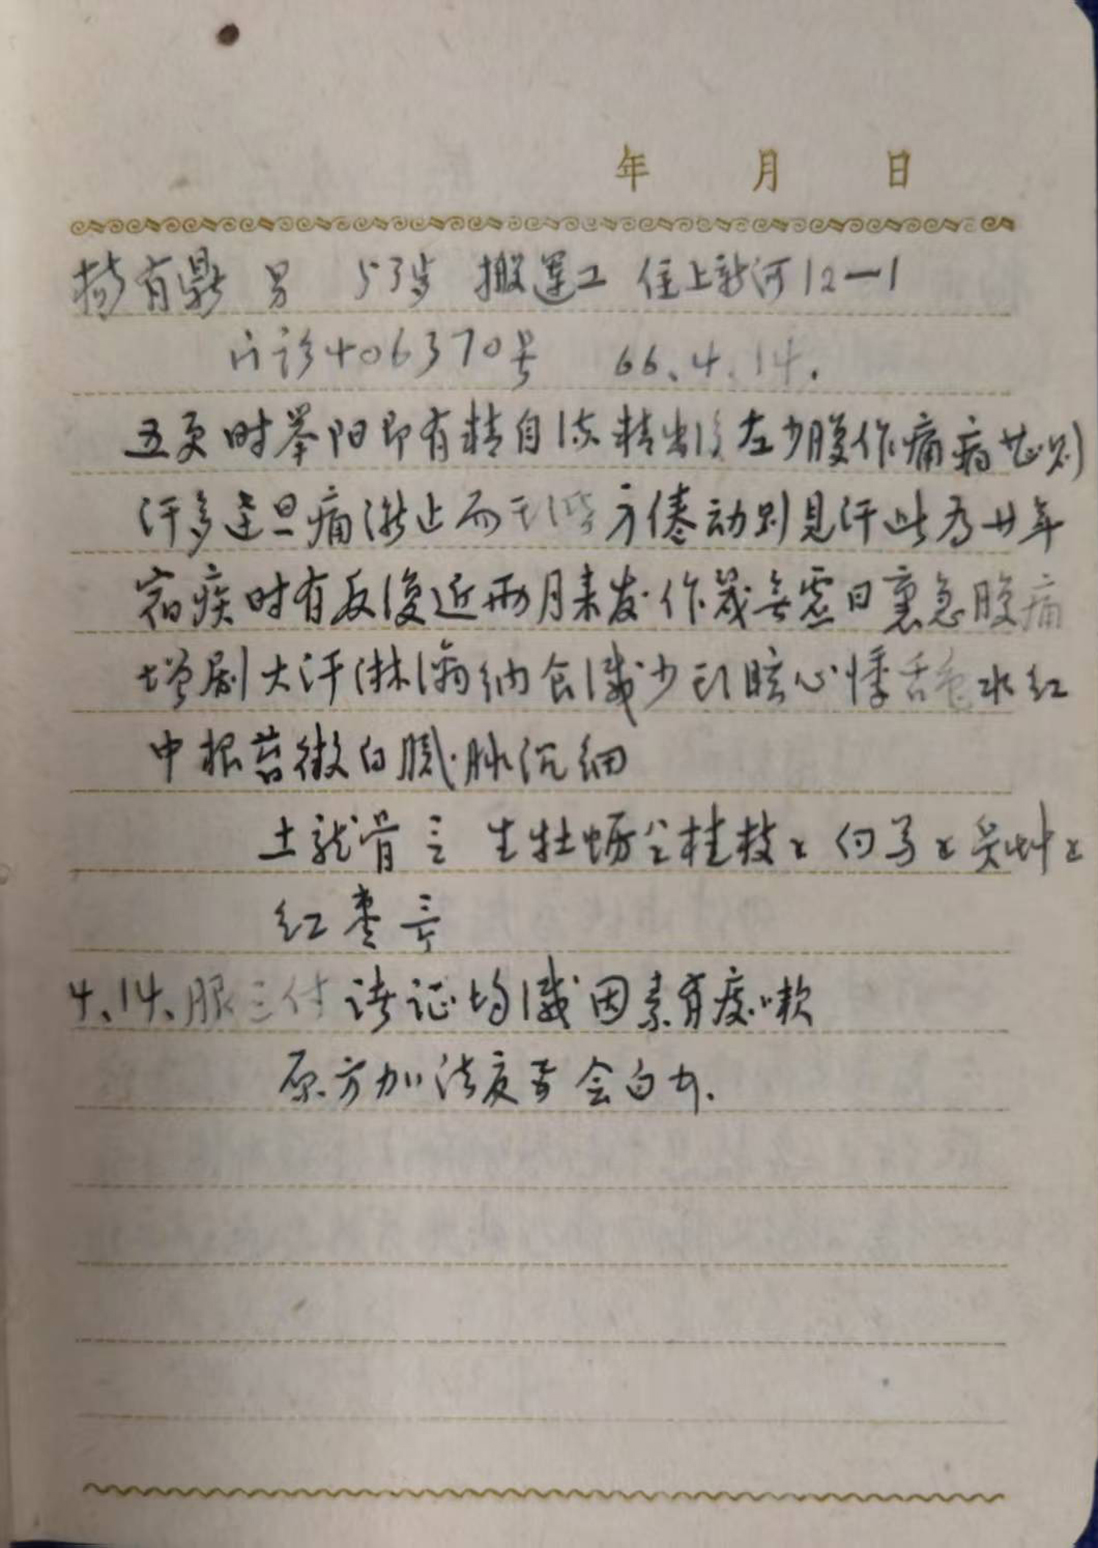 年 月 日
杨有鼎 男 53岁 搬运工 住上新河12-1
门诊406370号 66.4.14.
五更时举阳即有精自流精出后左少腹作痛痛甚则
汗多达旦痛渐止而 方倦动则见汗此为廿年
宿疾时有反复近两月来发作几无虚日里急腹痛
增剧大汗淋漓纳食减少头眩心悸舌色水红
中根苔微白腻脉沉细
土龙骨三 生牡蛎 桂枝 白芍 炙草
红枣
4.14.服三付诸证均减因素有痰嗽
原方加法夏 会白术.